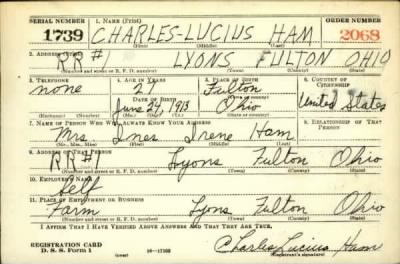 SERIAL NUMBER 1. NAME (Print) ORDER NUMBER
1739 CHARLES-LUCIUS HAM 2068
(First) (Middle) (Last)
2. ADDRESS (Print)
RR#1 LYONS FULTON OHIO
(Number and street or R. F. D. number) (Town) (County) (State)
3. TELEPHONE 4. AGE IN YEARS 5. PLACE OF BIRTH 6. COUNTRY OF CITIZENSHIP
none 27 Fulton
DATE OF BIRTH (Town or county)
June 24, 1913 Ohio United States
(Exchange) (Number) (Mo.) (Day) (Yr.) (State or country)
7. NAME OF PERSON WHO WILL ALWAYS KNOW YOUR ADDRESS 8. RELATIONSHIP OF THAT PERSON
Mrs Ines Irene Ham
(Mr., Mrs., Miss) (First) (Middle) (Last)
9. ADDRESS OF THAT PERSON
RR#1 Lyons Fulton Ohio
(Number and street or R. F. D. number) (Town) (County) (State)
10. EMPLOYER'S NAME
Self
11. PLACE OF EMPLOYMENT OR BUSINESS
Farm Lyons Fulton Ohio
(Number and street or R. F. D. number) (Town) (County) (State)
I AFFIRM THAT I HAVE VERIFIED ABOVE ANSWERS AND THAT THEY ARE TRUE.
REGISTRATION CARD
D. S. S. Form 1 (over) 16-17105 Charles Lucius Ham
(Registrant's signature)